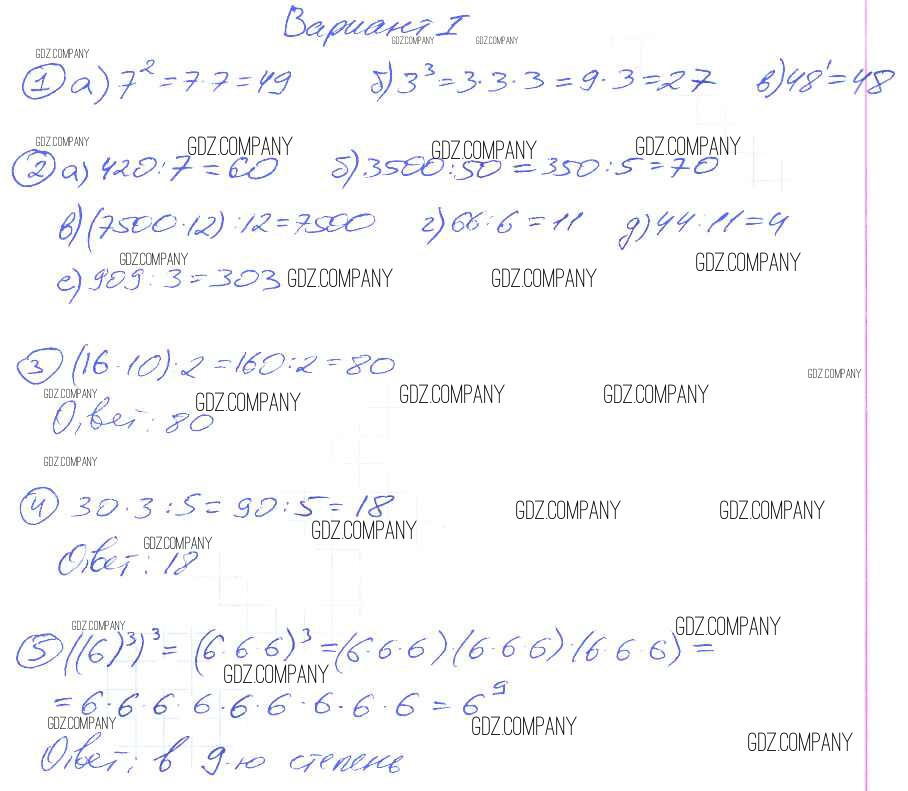 Вариант I
GDZ.COMPANY GDZ.COMPANY GDZ.COMPANY
① а) 7² = 7·7 = 49 б) 3³ = 3·3·3 = 9·3 = 27 в) 48¹ = 48
GDZ.COMPANY GDZ.COMPANY GDZ.COMPANY GDZ.COMPANY
② а) 420:7 = 60 б) 3500:50 = 350:5 = 70
в) (7500·12):12 = 7500 г) 66:6 = 11 д) 44:11 = 4
GDZ.COMPANY GDZ.COMPANY GDZ.COMPANY GDZ.COMPANY
е) 909:3 = 303
③ (16·10)·2 = 160:2 = 80
GDZ.COMPANY GDZ.COMPANY GDZ.COMPANY GDZ.COMPANY GDZ.COMPANY
Ответ: 80
GDZ.COMPANY
④ 30·3:5 = 90:5 = 18
GDZ.COMPANY GDZ.COMPANY GDZ.COMPANY
GDZ.COMPANY
Ответ: 18
GDZ.COMPANY GDZ.COMPANY
⑤ ((6)³)³ = (6·6·6)³ = (6·6·6)(6·6·6)·(6·6·6) =
GDZ.COMPANY
= 6·6·6·6·6·6·6·6·6 = 6⁹
GDZ.COMPANY GDZ.COMPANY GDZ.COMPANY
Ответ: в 9-ю степень